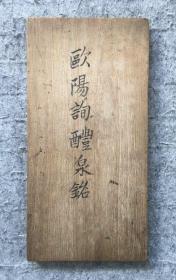 歐陽詢醴泉銘